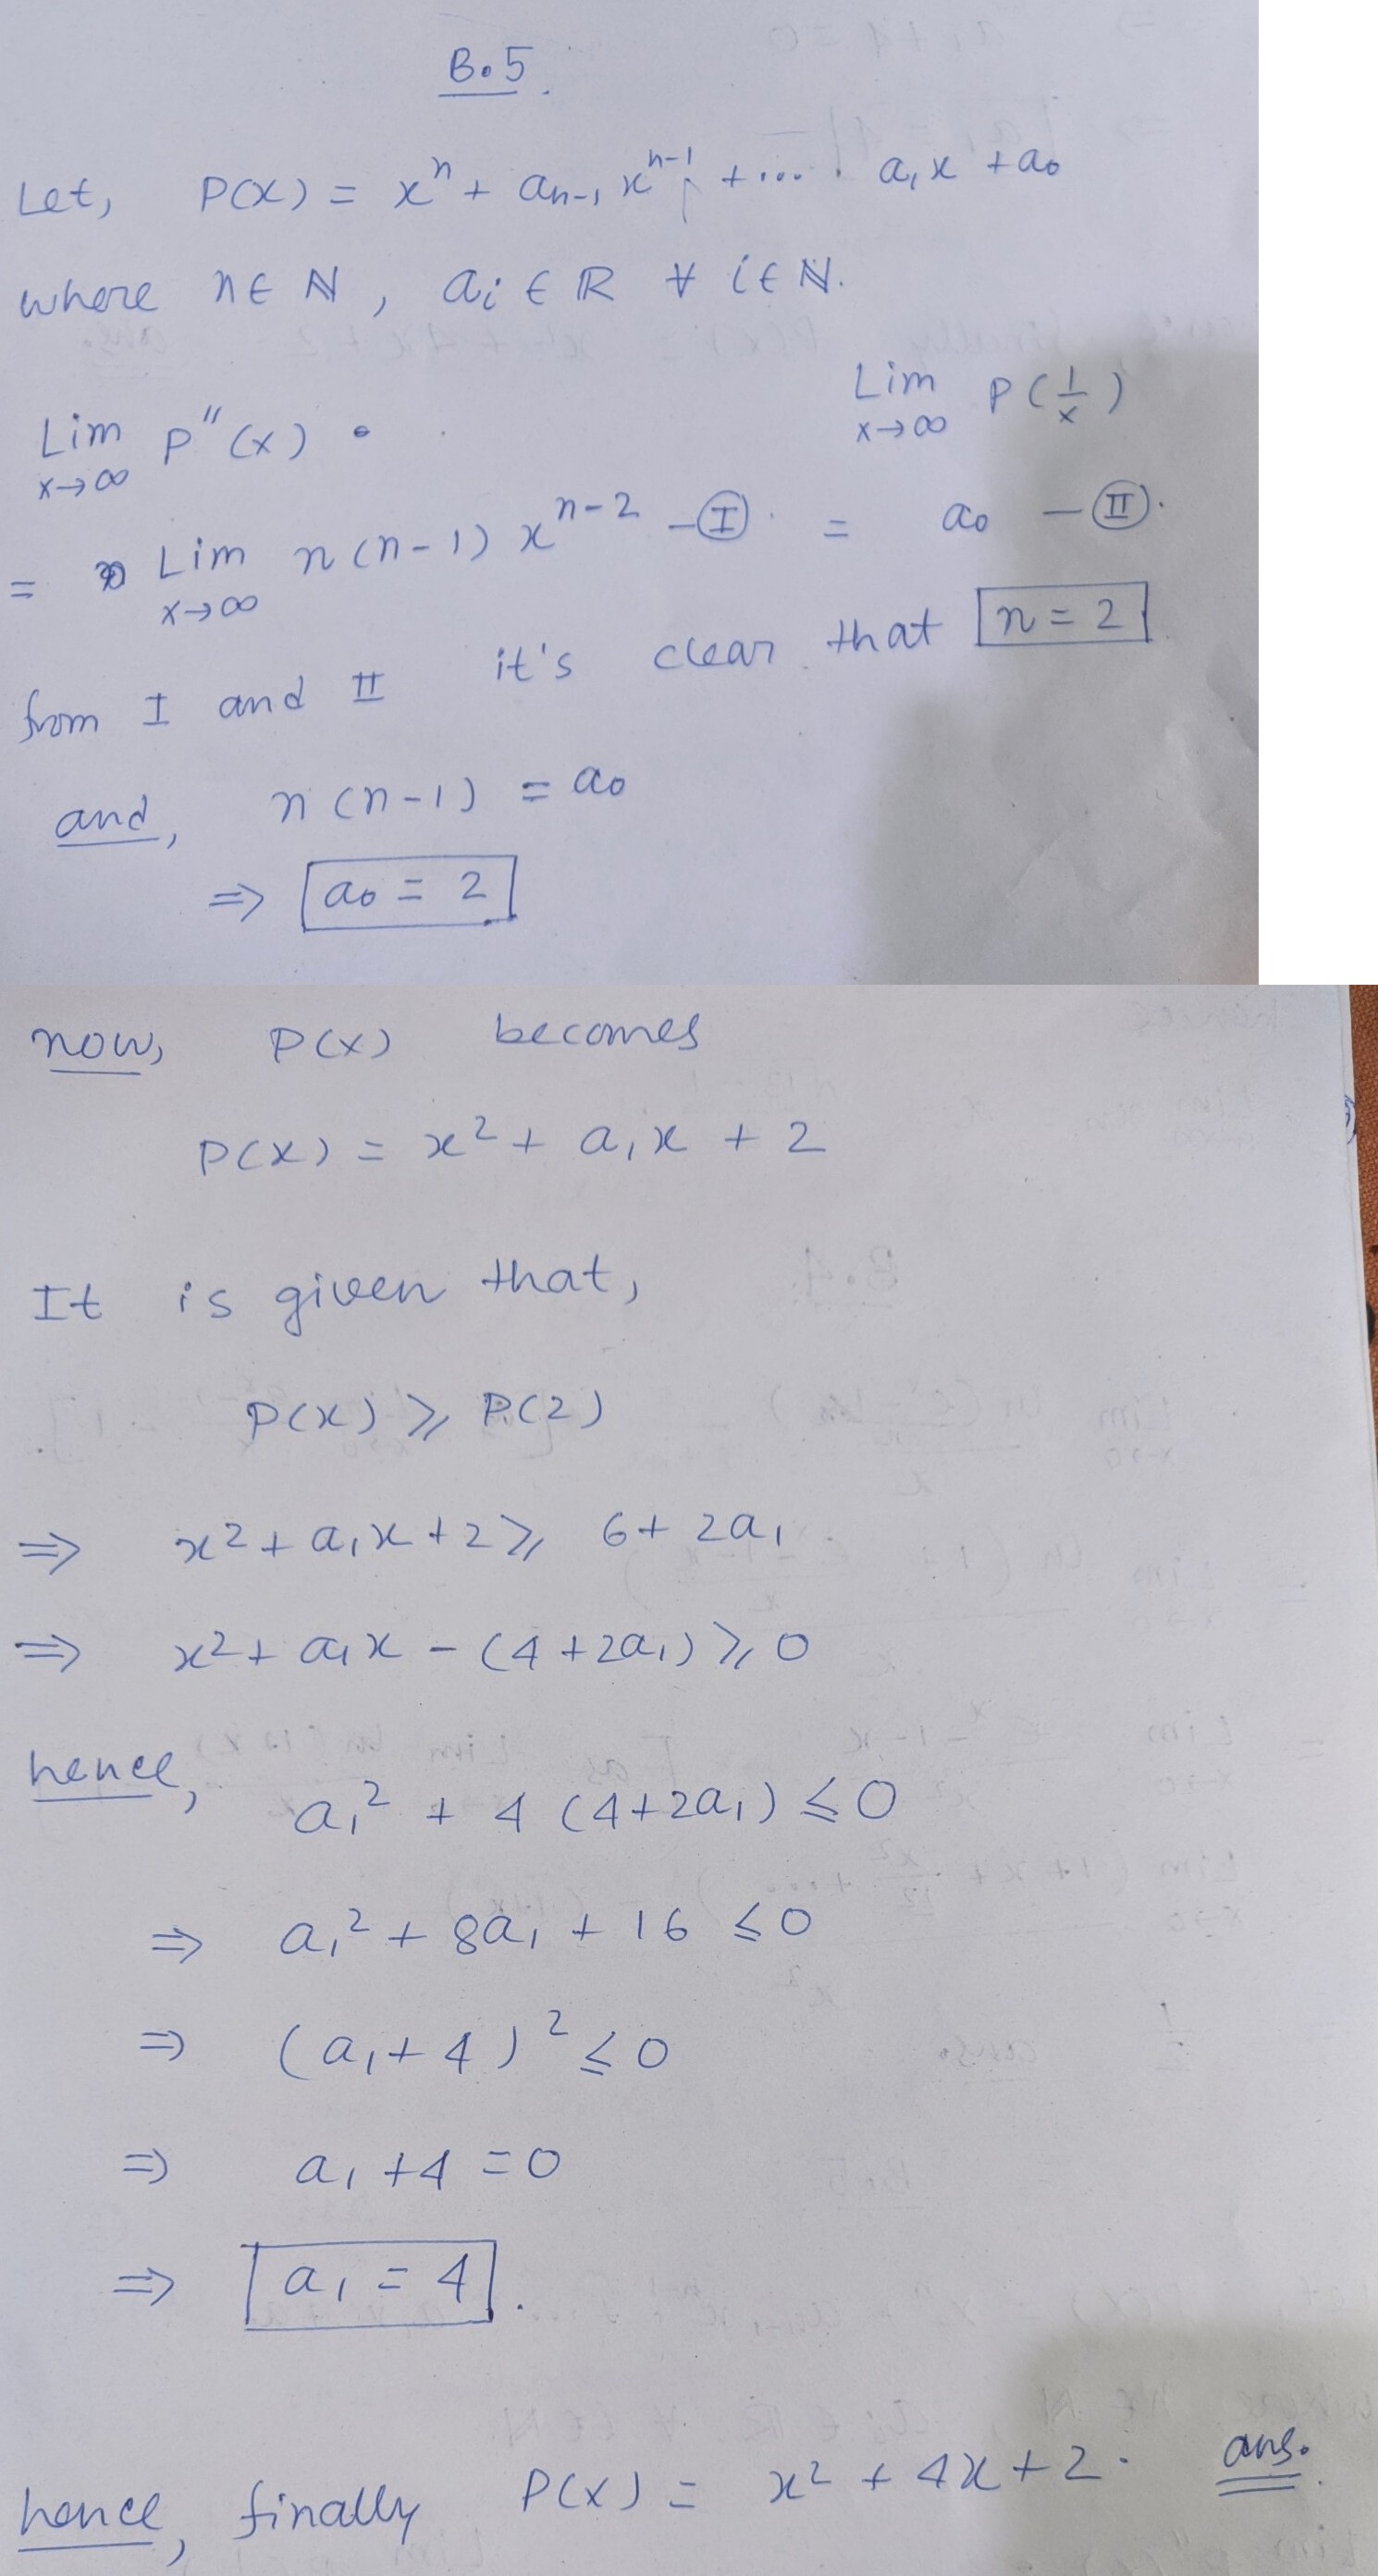 B.5.
Let, P(x) = xⁿ + aₙ₋₁ xⁿ⁻¹ + .... a₁x + a₀
where n ∈ ℕ, aᵢ ∈ ℝ ∀ i ∈ ℕ.
Lim x→∞ P''(x) • Lim x→∞ P(1/x)
= Lim x→∞ n(n-1) xⁿ⁻² - Ⓘ = a₀ - Ⓘⓘ.
from I and II it's clear that n = 2
and, n(n-1) = a₀
⇒ a₀ = 2
now, P(x) becomes
P(x) = x² + a₁x + 2
It is given that,
P(x) ⩾ P(2)
⇒ x² + a₁x + 2 ⩾ 6 + 2a₁
⇒ x² + a₁x - (4 + 2a₁) ⩾ 0
hence, a₁² + 4 (4 + 2a₁) ≤ 0
⇒ a₁² + 8a₁ + 16 ≤ 0
⇒ (a₁ + 4)² ≤ 0
⇒ a₁ + 4 = 0
⇒ a₁ = 4.
hence, finally P(x) = x² + 4x + 2. ans.